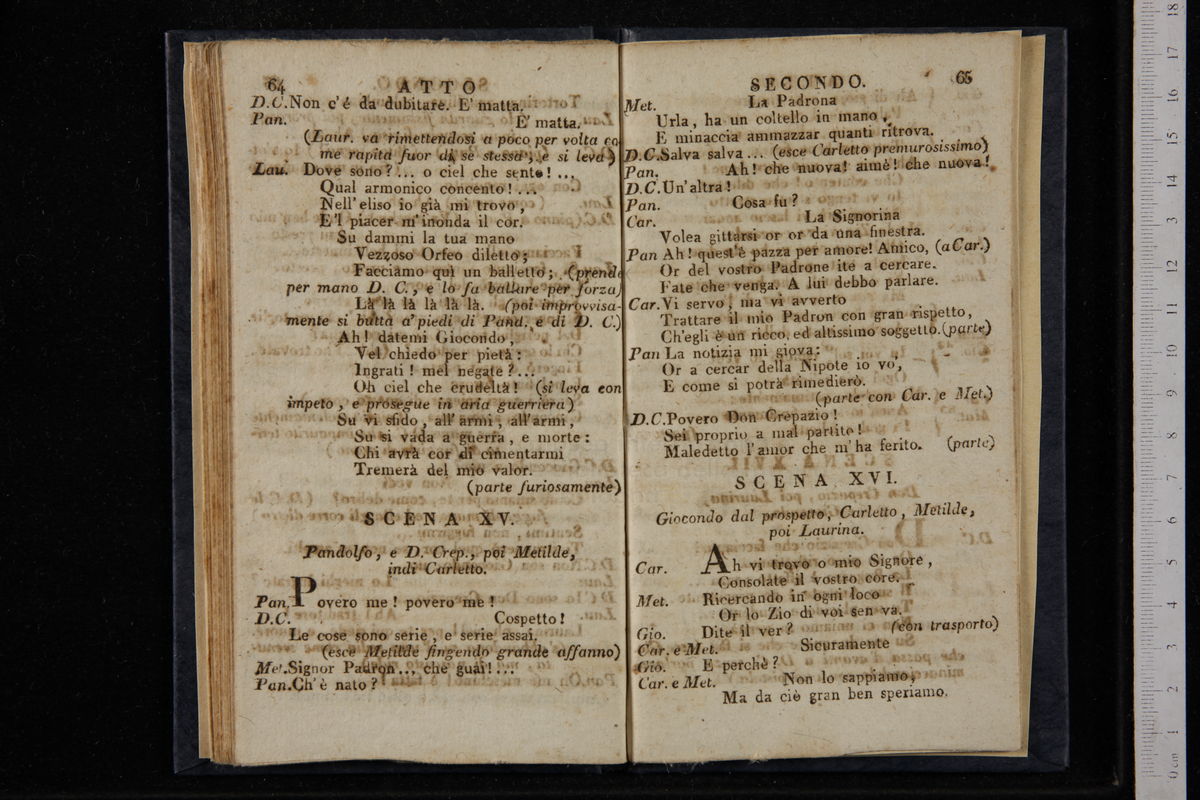 64 ATTO
D.C. Non c'é da dubitare. E' matta.
Pan. E' matta.
(Laur. va rimettendosi a poco per volta co
me rapita fuor di se stessa, e si leva)
Lau. Dove sono?... o ciel che sento! ...
Qual armonico concento! ...
Nell' eliso io già mi trovo,
E'l piacer m'inonda il cor.
Su dammi la tua mano
Vezzoso Orfeo diletto;
Facciamo quì un balletto; (prende
per mano D. C., e lo fa ballare per forza)
Là là là là là là. (poi improvvisa-
mente si butta a' piedi di Pand. e di D. C.)
Ah! datemi Giocondo,
Vel chiedo per pietà:
Ingrati! mel negate?...
Oh ciel che crudeltà! (si leva con
impeto, e prosegue in aria guerriera)
Su vi sfido, all' armi, all' armi,
Su si vada a guerra, e morte:
Chi avrà cor di cimentarmi
Tremerà del mio valor.
(parte furiosamente)
SCENA XV.
Pandolfo, e D. Crep., poi Metilde,
indi Carletto.
Pan. Povero me! povero me!
D.C. Cospetto!
Le cose sono serie, e serie assai.
(esce Metilde fingendo grande affanno)
Me'. Signor Padron..., che guai!...
Pan. Ch' è nato?
SECONDO. 65
Met. La Padrona
Urla, ha un coltello in mano,
E minaccia ammazzar quanti ritrova.
D.C. Salva salva... (esce Carletto premurosissimo)
Pan. Ah! che nuova! aimè! che nuova!
D.C. Un'altra!
Pan. Cosa fu?
Car. La Signorina
Volea gittarsi or or da una finestra.
Pan Ah! quest'è pazza per amore! Amico, (a Car.)
Or del vostro Padrone ite a cercare.
Fate che venga. A lui debbo parlare.
Car. Vi servo, ma vi avverto
Trattare il mio Padron con gran rispetto,
Ch'egli è un ricco, ed altissimo soggetto. (parte)
Pan La notizia mi giova:
Or a cercar della Nipote io vo,
E come si potrà rimedierò.
(parte con Car. e Met.)
D.C. Povero Don Crepazio!
Sei proprio a mal partito!
Maledetto l'amor che m'ha ferito. (parte)
SCENA XVI.
Giocondo dal prospetto, Carletto, Metilde,
poi Laurina.
Car. Ah vi trovo o mio Signore,
Consolate il vostro core.
Met. Ricercando in ogni loco
Or lo Zio di voi sen va.
Gio. Dite il ver? (con trasporto)
Car. e Met. Sicuramente
Gio. E perchè?
Car. e Met. Non lo sappiamo,
Ma da ciò gran ben speriamo.